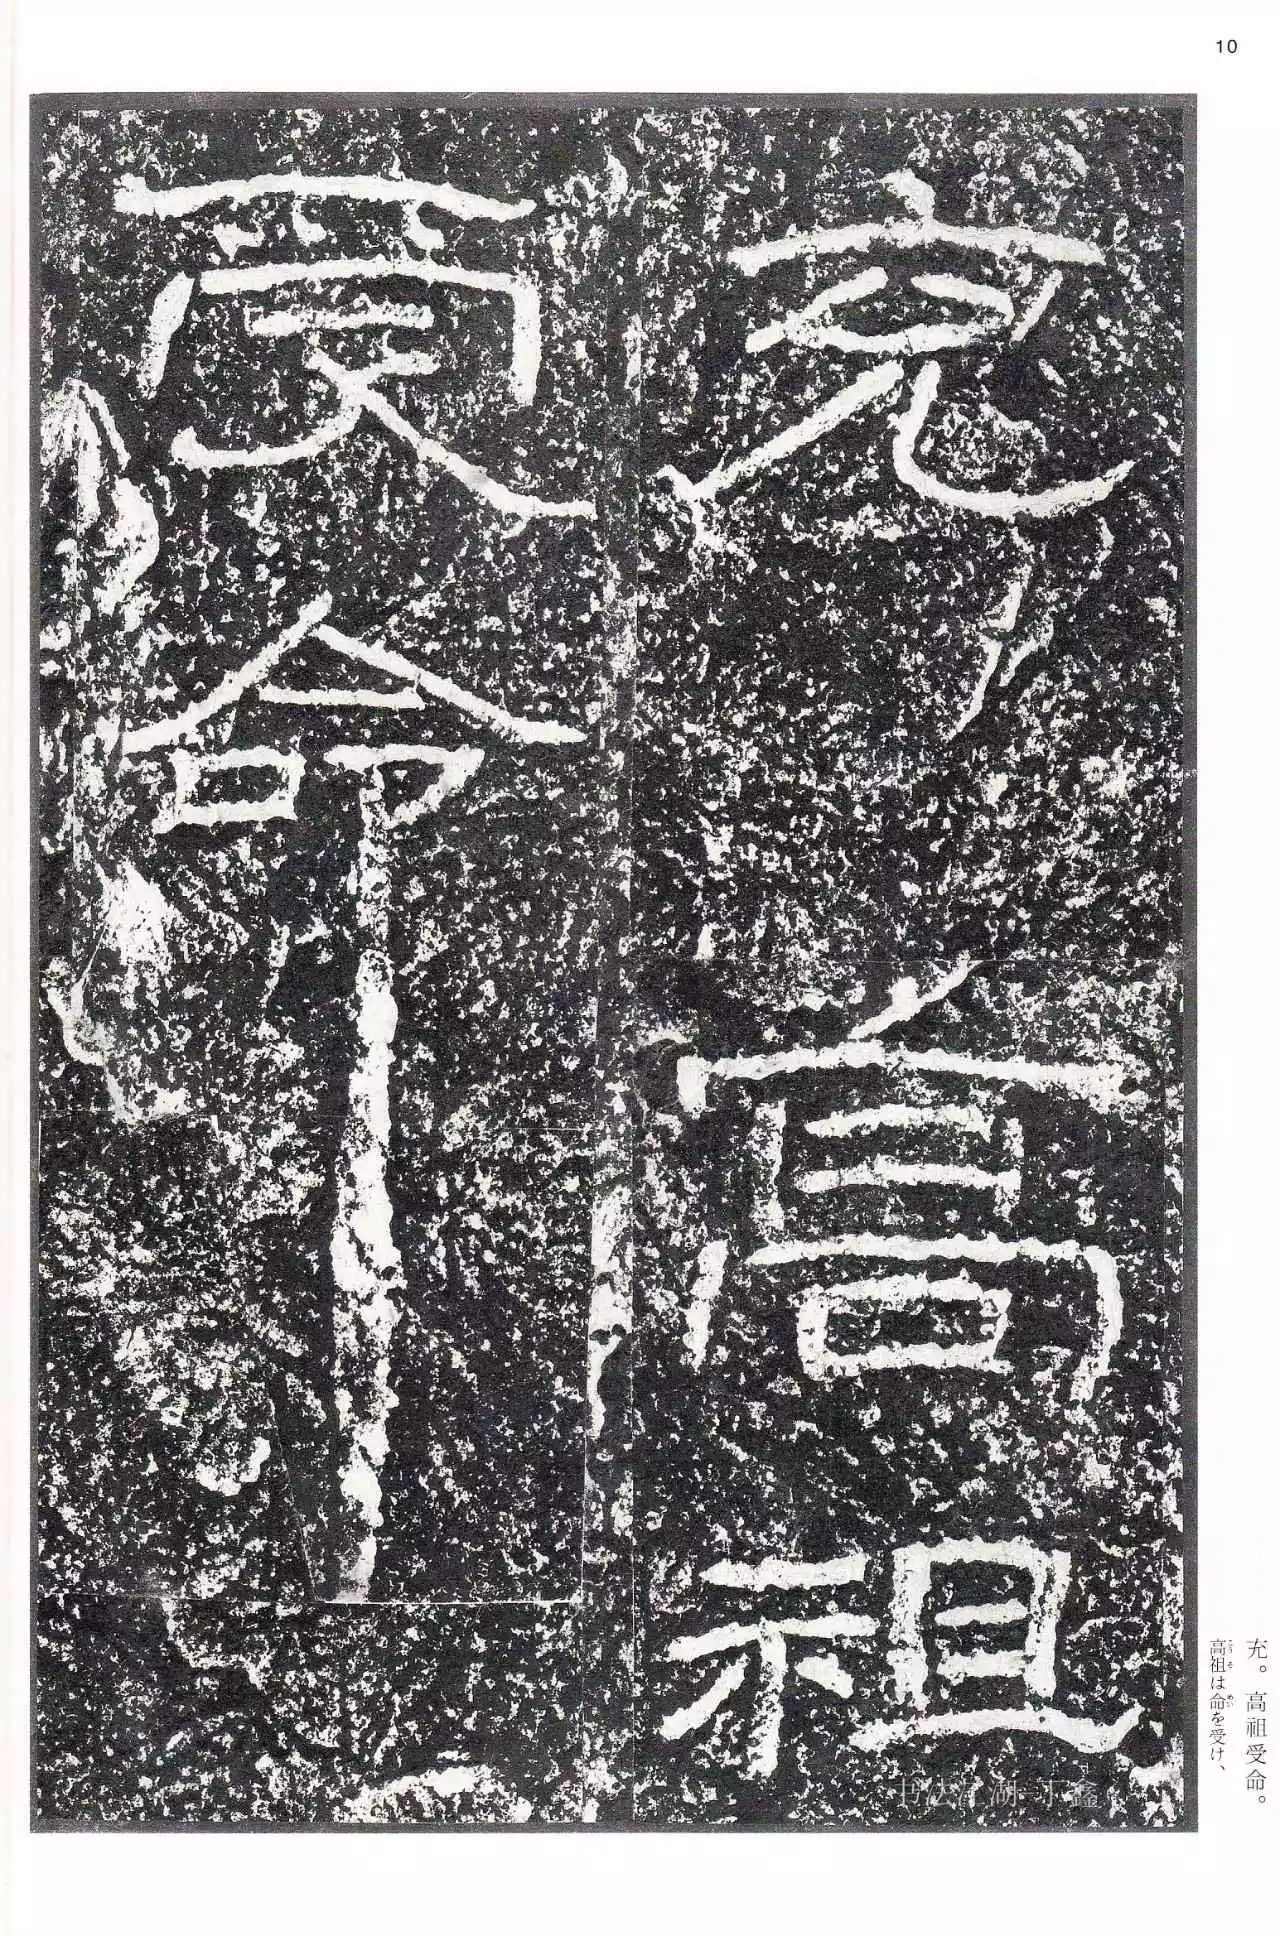 10
充高祖
受命
充。高祖受命。
高祖は命を受け、
书法江湖 丁鑫